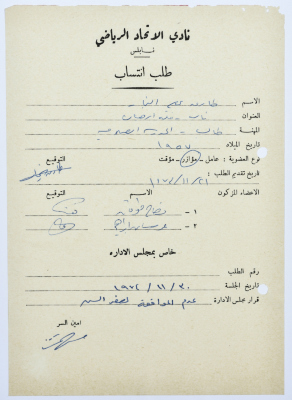 نادي الاتحاد الرياضي
نابلس
طلب انتساب
الاسم
العنوان نابلس
المهنة طالب - المدرسة
تاريخ الميلاد ١٩٥٧
نوع العضوية : عامل - مؤازر - مؤقت التوقيع
تاريخ تقديم الطلب : ٢١ / ١١ / ١٩٧٢
الاعضاء المزكون الاسم التوقيع
١ -
٢ -
خاص بمجلس الاداره
رقم الطلب
تاريخ الجلسة ٣٠ / ١١ / ١٩٧٢
قرار مجلس الادارة عدم الموافقة لصغر السن
امين السر